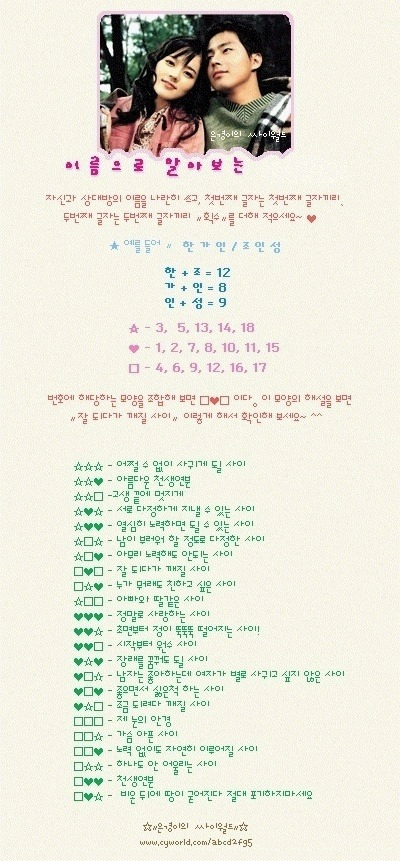 은경이의 싸이월드
이름으로 알아보는
자신과 상대방의 이름을 나란히 쓰고, 첫번째 글자는 첫번째 글자끼리,
두번째 글자는 두번째 글자끼리 〃획수〃를 더해 적으세요~ ♥
★ 예를 들어 〃 한 가 인 / 조 인 성
한 + 조 = 12
가 + 인 = 8
인 + 성 = 9
☆ - 3, 5, 13, 14, 18
♥ - 1, 2, 7, 8, 10, 11, 15
□ - 4, 6, 9, 12, 16, 17
번호에 해당하는 모양을 조합해 보면 □♥□ 이다。이 모양의 해설을 보면
〃잘 되다가 깨질 사이〃 이렇게 해서 확인해 보세요~ ^^
☆☆☆ - 어쩔 수 없이 사귀게 될 사이
☆☆♥ - 아름다운 천생연분
☆☆□ -고생 끝에 멋지게
☆♥☆ - 서로 다정하게 지낼 수 있는 사이
☆♥♥ - 열심히 노력하면 될 수 있는 사이
☆□☆ - 남이 부러워 할 정도로 다정한 사이
☆□♥ - 아무리 노력해도 안되는 사이
□♥□ - 잘 되다가 깨질 사이
□☆♥ - 누가 뭐래도 친하고 싶은 사이
☆□□ - 아빠와 딸같은 사이
♥♥♥ - 정말로 사랑하는 사이
♥♥☆ - 초면부터 정이 뚝뚝뚝 떨어지는 사이!
♥♥□ - 시작부터 원수 사이
♥☆♥ - 장래를 꿈꿔도 될 사이
♥□☆ - 남자는 좋아하는데 여자가 별로 사귀고 싶지 않은 사이
♥□♥ - 좋으면서 싫은척 하는 사이
♥☆□ - 조금 되려다 깨질 사이
□□□ - 제 눈의 안경
□□☆ - 가슴 아픈 사이
□□♥ - 노력 없이도 자연히 이루어질 사이
□☆☆ - 하나도 안 어울리는 사이
□♥♥ - 천생연분
□♥☆ - 비온 뒤에 땅이 굳어진다 절대 포기하지마세요
☆〃은경이의 싸이월드〃☆
www.cyworld.com/abcd2fg5